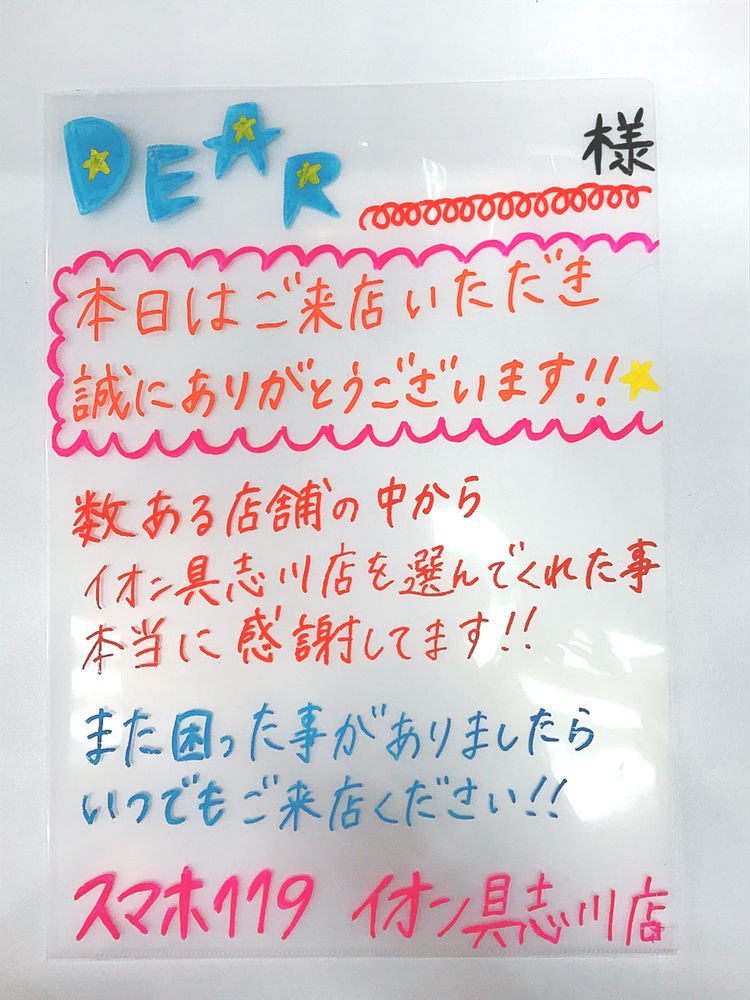 DEAR 様
本日はご来店いただき
誠にありがとうございます!!
数ある店舗の中から
イオン具志川店を選んでくれた事
本当に感謝してます!!
また困った事がありましたら
いつでもご来店ください!!
スマホ119 イオン具志川店